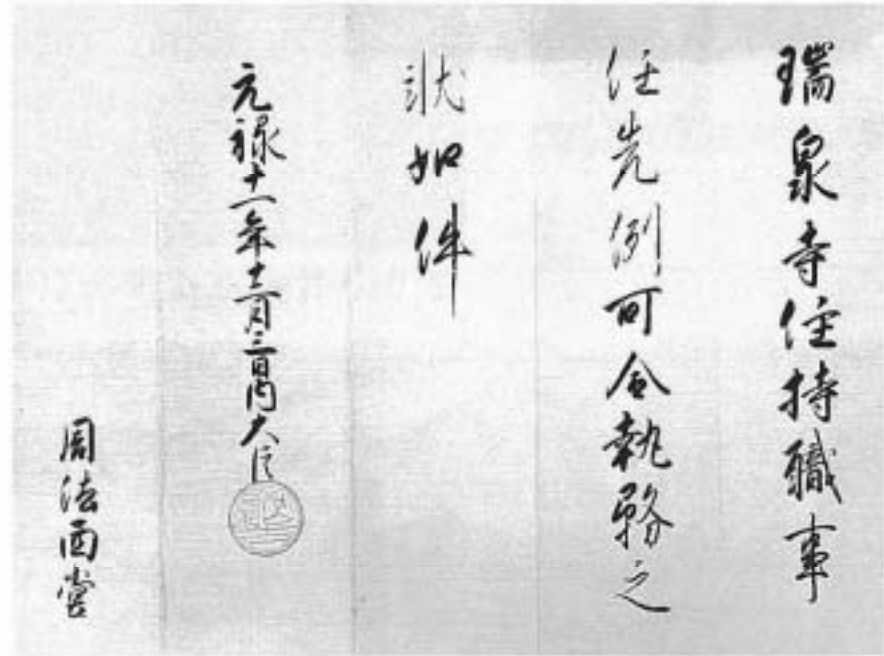 瑞泉寺住持職事
任先例可令執務之
状如件
元禄十一年十二月三日内大臣
周法西堂